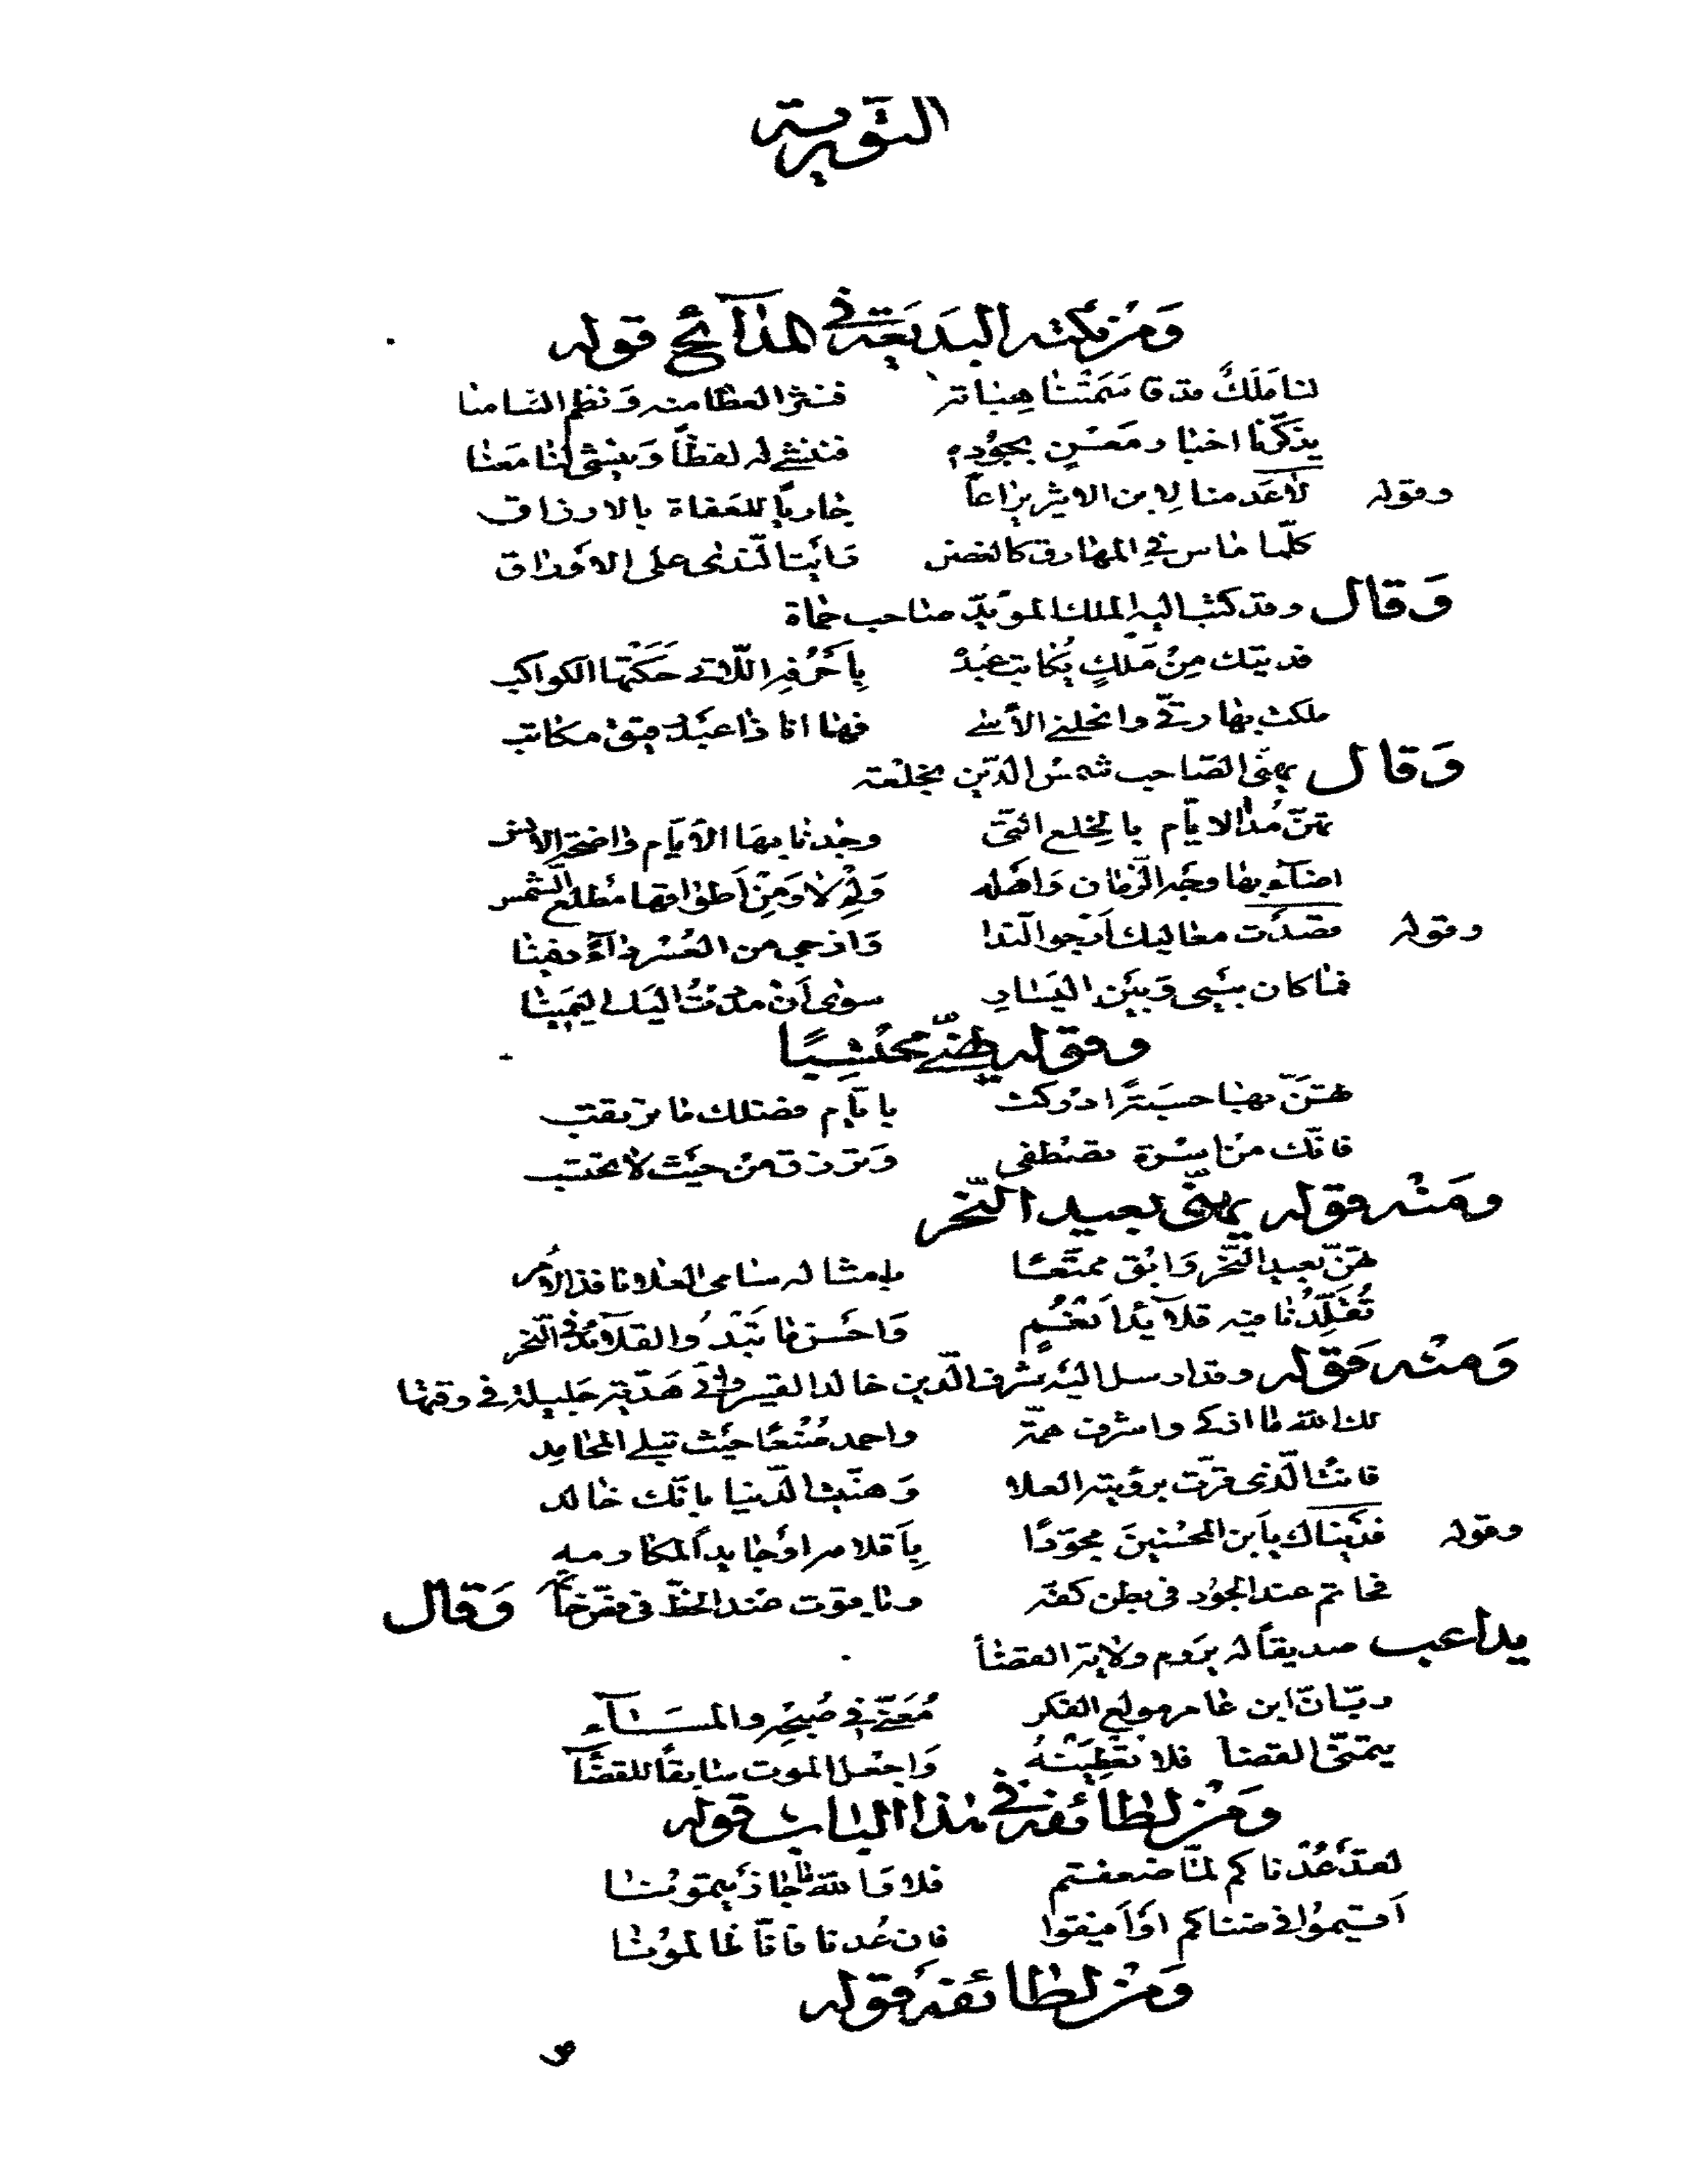 التورية
وَمِنْ نكته البَديعَة في المدَآئح قوله
لنا مَلَكٌ قد قاسَمتْنا هِباته فنثر العطا منه وَنظم الثنا منا
يذكّرنا اخبار مَعْنٍ بجُودِه فننشي له لفظًا وَينشي لنا مَعنا
وقوله لاعَدمنا لِابن الاثير يراعاً جارياً للعَفاة بالارزاق
كلّما ماس في المهارق كالغصن رأيت الندى على الأوراق
وَقال وقد كتب اليه الملك المؤيّد صاحب حماة
فديتك مِنْ مَلكٍ يُكاتب عَبْدهُ بِأحْرُفه اللّاتي حَكَتْها الكواكب
ملكت بها رقّي وانحلني الأسى فها انا ذا عَبْد رقيق مكاتب
وَقال يهنّي الصّاحب شمسْ الدّين بخلعته
تهنّ مُدَا الايّام بالخِلع التّي وجدنا بهَا الأيّام واضحة الانس
اضآء بها وجْه الزّمان وَاهْله وَلِمْ لا وَمِنْ اَطوَاقها مَطلع الشّمس
وقوله قصَدْت معاليك اَرْجو النّدا وَازجي من العُسْر دآءً دفينا
فما كان بيْني وَبيْن اليَسار سوى اَنْ مدَدْتُ اليْك اليَمِينا
وقوله يهنّي محْتسِبًا
تهَنّ بها حسبَةً ادْركت بايّام فضلك ما ترتقب
فانّك منْ اسْرة تصْطفى وَترزق منْ حيْث لا تحْتسِب
ومَنْه قوله يهنّي بعيد النّحْر
تهنّ بعيد النّحْر وَابْق ممتّعًا بامثاله سامى العلا نافذ الاَمْر
تُقلِّدُنا فيه قلآئد اَنْعُمٍ وَاحْسن ما تَبْدُو القلآئد في النّحْر
وَمنْه قوْله وقد ارسل اليْه شرف الدّين خالد القيسراني هَديّة جَليلة في وقتها
لك الله ما ازكى واشرف همّة واحمد صُنْعًا حيْث تبلى المحامِد
فانْت الّذى قرّت برؤْيته العلا وَهنّيت الدّنيا بانّك خالد
وقوله فديْناك يا اَبن المحْسنِينَ مجوّدًا بِاَقلامه اوْ جايداً بمكارمه
فحاتم عند الجوْد في بطن كفّه وياقوت عنْد الحظّ في فصّ خاتمه وَقال
يداعب صديقاً له يرَوم ولاية القضآ
ربّ انّ ابن عامر مولع الفكر مُعَنّى في صُبْحِه والمسَآء
يتمنّى القضا فلا تعْطِيَنْهُ وَاجعْل الموت سابقاً للقضآ
وَمنْ لطائفه في هذا الباب قوله
لقدْ عُدْناكم لمّا ضعفتم فلا وَالله ما جازيْتمونْا
اَقيموا في ضناكم اوْ اَفيقوا فان عُدنا فانّا ظالموْنا
وَمنْ لطائفه قوله